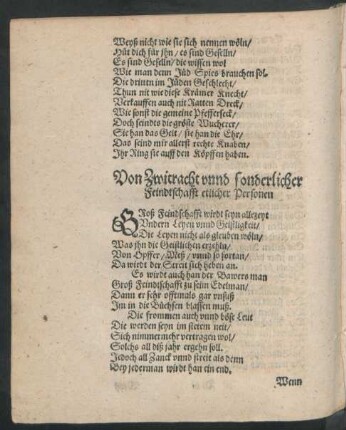 Weyß nicht wie sie sich nennen wöln/
Hüt dich für jhn/ es sind Geselln/
Es sind Geselln/ die wissen wol
Wie man denn Jüd Spies brauchen sol.
Die dritten im Jüden Geschlecht/
Thun nit wie diese Krämer Knecht/
Verkauffen auch nit Ratten Dreck/
Wie sonst die gemeine Pfefferseck/
Doch seindts die gröste Wucherer/
Sie han das Gelt/ sie han die Ehr/
Das seind mir allerst rechte Knaben/
Ihr Ring sie auff den Köpffen haben.
Von Zwitracht vnnd sonderlicher
Feindtschafft etlicher Personen
GRoß Feindschafft wirdt seyn allezeyt
Vndern Leyen vnnd Geistligkeit/
Die Leyen nicht als gleuben wöln/
Was jhn die Geistlichen erzehln/
Von Opffer/ Meß/ vnnd so fortan/
Da wirdt der Streit sich heben an.
Es wirdt auch han der Bawersman
Groß Feindtschafft zu sein Edelman/
Dann er sehr offtmals gar vnsüß
Im in die Büchsen blassen muß.
Die frommen auch vnnd böse Leut
Die werden seyn im stetem neit/
Sich nimmermehr vertragen wol/
Solchs all diß jahr ergehn soll.
Jedoch all Zanck vnnd streit als denn
Bey jederman wirdt han ein end.
Wenn